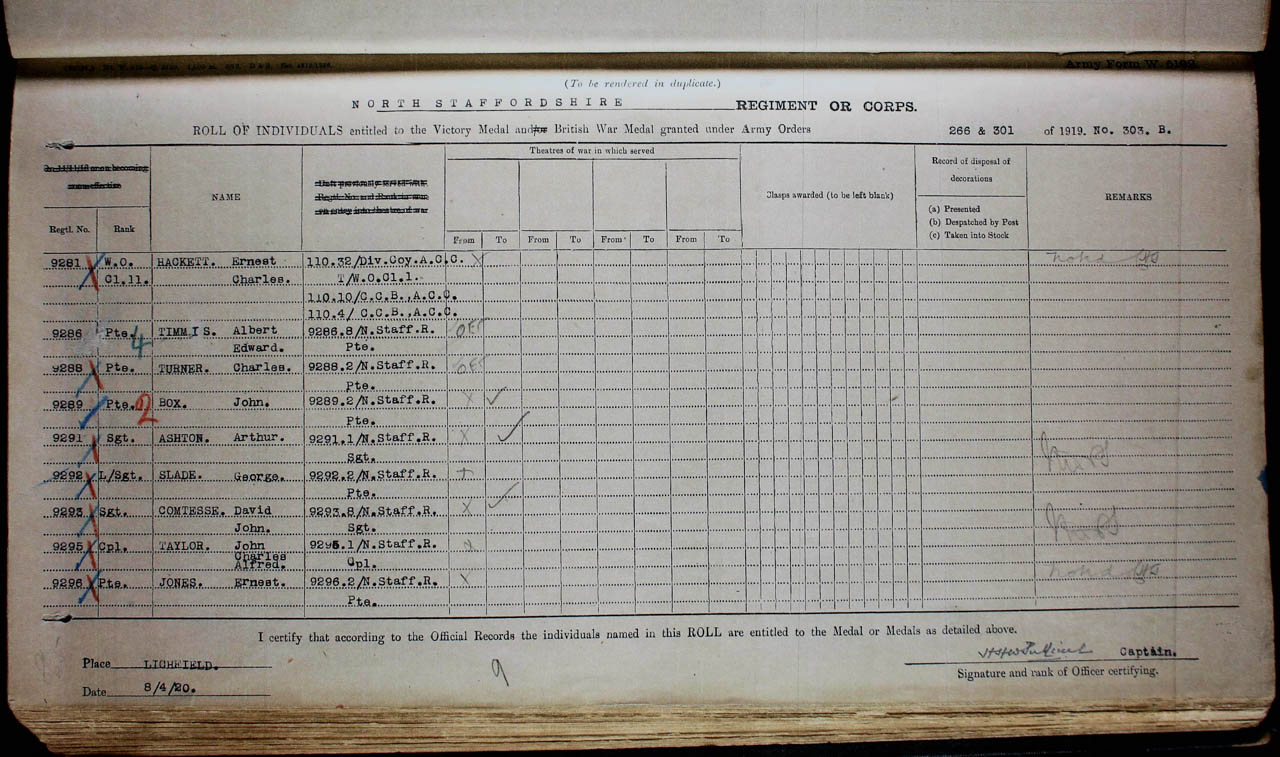 Army Form W. 5192
(To be rendered in duplicate.)
NORTH STAFFORDSHIRE REGIMENT OR CORPS.
ROLL OF INDIVIDUALS entitled to the Victory Medal and/or British War Medal granted under Army Orders 266 & 301 of 1919. No. 303. B.
Theatres of war in which served
Record of disposal of
decorations
NAME
Clasps awarded (to be left blank)
REMARKS
(a) Presented
(b) Despatched by Post
(c) Taken into Stock
Regtl. No. Rank
From To From To From To From To
9281 W.O. HACKETT. Ernest 110.32/Div.Coy.A.C.C. X
Cl.11. Charles. T/W.O.Cl.1.
110.10/C.C.B.,A.C.C.
110.4/ C.C.B.,A.C.C.
9286 Pte. 4 TIMMIS. Albert 9286.8/N.Staff.R.
Edward. Pte.
9288 Pte. TURNER. Charles. 9288.2/N.Staff.R.
Pte.
9289 Pte. 2 BOX. John. 9289.2/N.Staff.R. X ✓
Pte.
9291 Sgt. ASHTON. Arthur. 9291.1/N.Staff.R. X ✓
Sgt.
9292 L/Sgt. SLADE. George. 9292.2/N.Staff.R.
Pte.
9293 Sgt. COMTESSE. David 9293.8/N.Staff.R. X ✓
John. Sgt.
9295 Cpl. TAYLOR. John 9295.1/N.Staff.R. X
Charles
Alfred. Cpl.
9296 Pte. JONES. Ernest. 9296.2/N.Staff.R. X
Pte.
I certify that according to the Official Records the individuals named in this ROLL are entitled to the Medal or Medals as detailed above.
Place LICHFIELD.
Captain.
Signature and rank of Officer certifying.
Date 8/4/20.
9